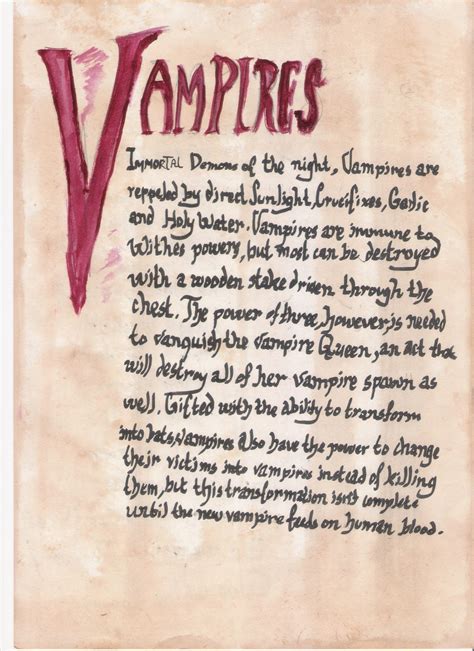 VAMPIRES
IMMORTAL Demons of the night, Vampires are
repeled by direct Sunlight, Crucifixes, Garlic
and Holy Water. Vampires are immune to
Withes powers, but most can be destroyed
with a wooden stake driven through the
chest. The power of three, however, is needed
to vanquish the Vampire Queen, an act that
will destroy all of her vampire spawn as
well. Gifted with the ability to transform
into bats, vampires also have the power to change
their victims into vampires instead of killing
them, but this transformation isn't complete
until the new vampire feeds on human blood.